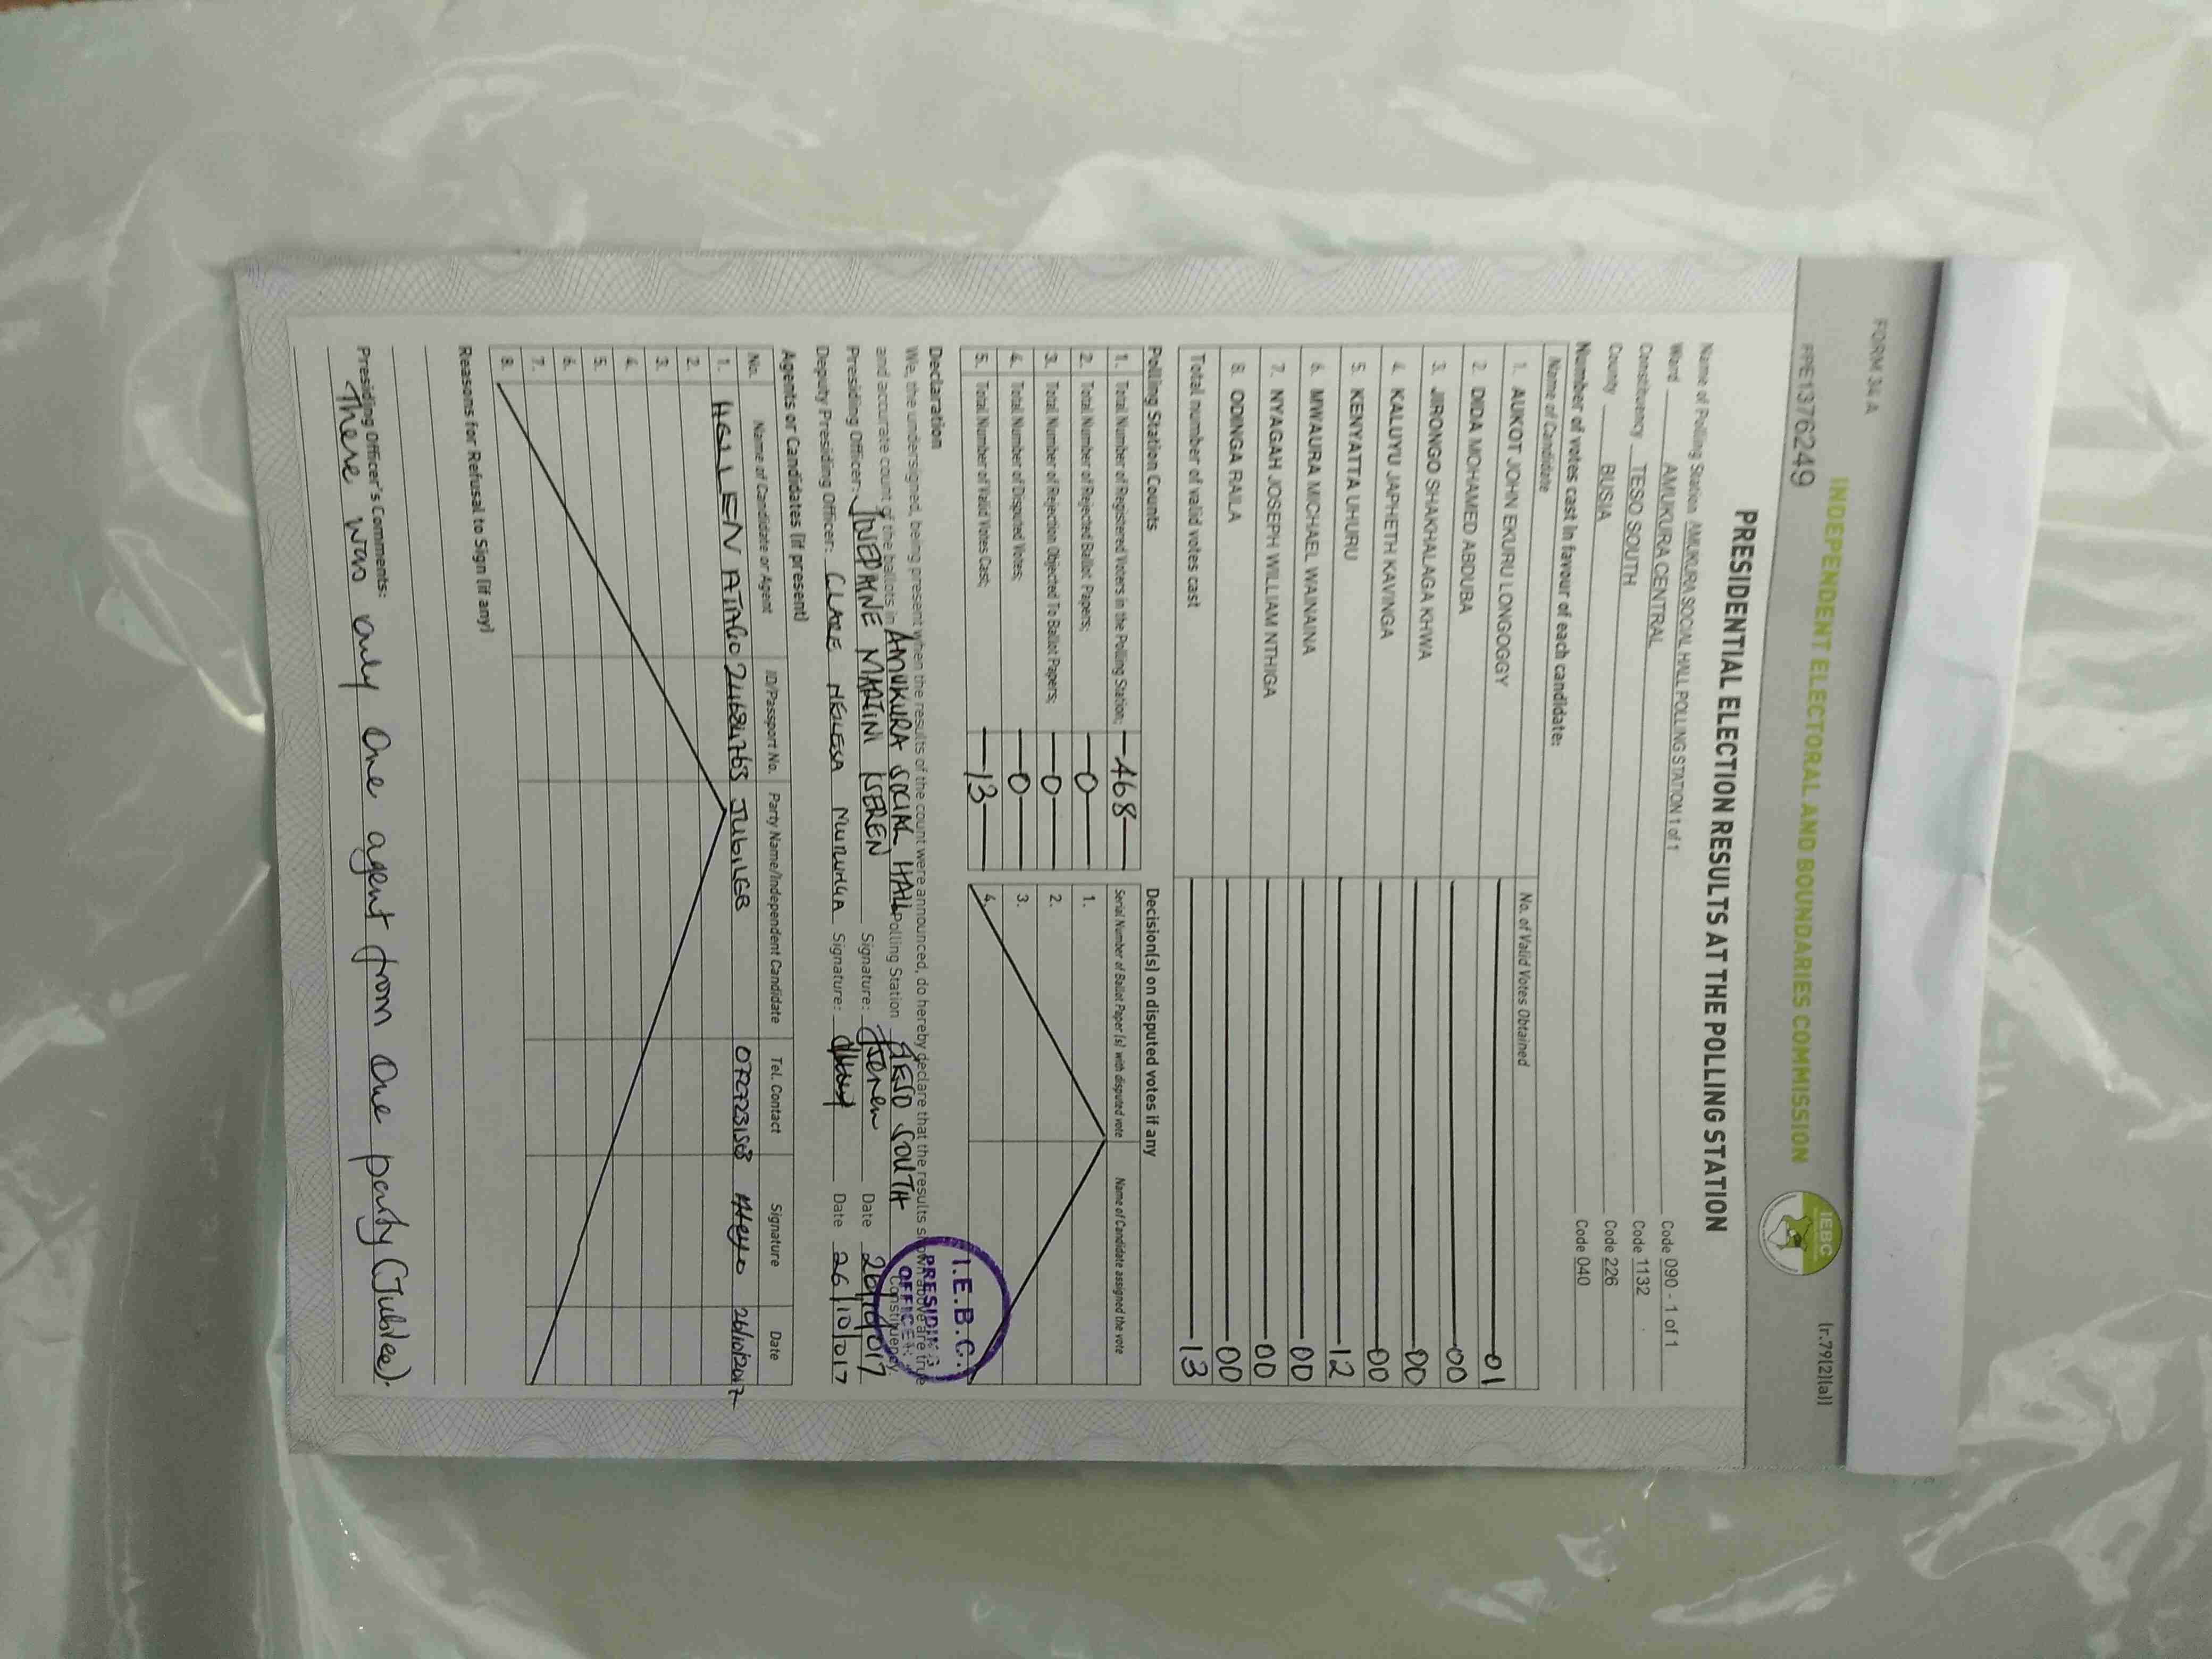 FORM 34 A
(r.79(2)(a))
INDEPENDENT ELECTORAL AND BOUNDARIES COMMISSION
IEBC
PPE1376249
PRESIDENTIAL ELECTION RESULTS AT THE POLLING STATION
Name of Polling Station AMUKURA SOCIAL HALL POLLING STATION 1 of 1 Code 090 - 1 of 1
Ward AMUKURA CENTRAL Code 1132
Constituency TESO SOUTH Code 226
County BUSIA Code 040
Number of votes cast in favour of each candidate:
Name of Candidate No. of Valid Votes Obtained
1. AUKOT JOHN EKURU LONGOGGY 01
2. DIDA MOHAMED ABDUBA 00
3. JIRONGO SHAKHALAGA KHWA 00
4. KALUYU JAPHETH KAVINGA 00
5. KENYATTA UHURU 12
6. MWAURA MICHAEL WAINAINA 00
7. NYAGAH JOSEPH WILLIAM NTHIGA 00
8. ODINGA RAILA 00
Total number of valid votes cast 13
Polling Station Counts
1. Total Number of Registered Voters in the Polling Station; 468
2. Total Number of Rejected Ballot Papers; 0
3. Total Number of Rejection Objected To Ballot Papers; 0
4. Total Number of Disputed Votes; 0
5. Total Number of Valid Votes Cast; 13
Decision(s) on disputed votes if any
Serial Number of Ballot Paper (s) with disputed vote Name of Candidate assigned the vote
1.
2.
3.
4.
Declaration
We, the undersigned, being present when the results of the count were announced, do hereby declare that the results shown above are true
and accurate count of the ballots in AMUKURA SOCIAL HALL Polling Station TESO SOUTH Constituency.
Presiding Officer: MARTINI ISEREN Signature: Date 26/10/2017
Deputy Presiding Officer: CLARE Signature: Date 26/10/017
I.E.B.C.
PRESIDING
OFFICER
Agents or Candidates (if present)
No. Name of Candidate or Agent ID/Passport No. Party Name/Independent Candidate Tel. Contact Signature Date
1. JUBILEE 26/10/2017
2.
3.
4.
5.
6.
7.
8.
Reasons for Refusal to Sign (if any)
Presiding Officer's Comments:
There was only one agent from one party (Jubilee).